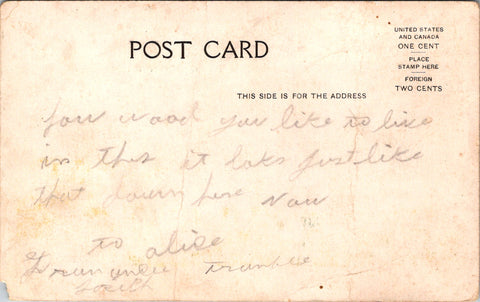 POST CARD
UNITED STATES
AND CANADA
ONE CENT
PLACE
STAMP HERE
FOREIGN
TWO CENTS
THIS SIDE IS FOR THE ADDRESS
how wood you like to live
in this it loks just like
that down here now
to alise
Frankie